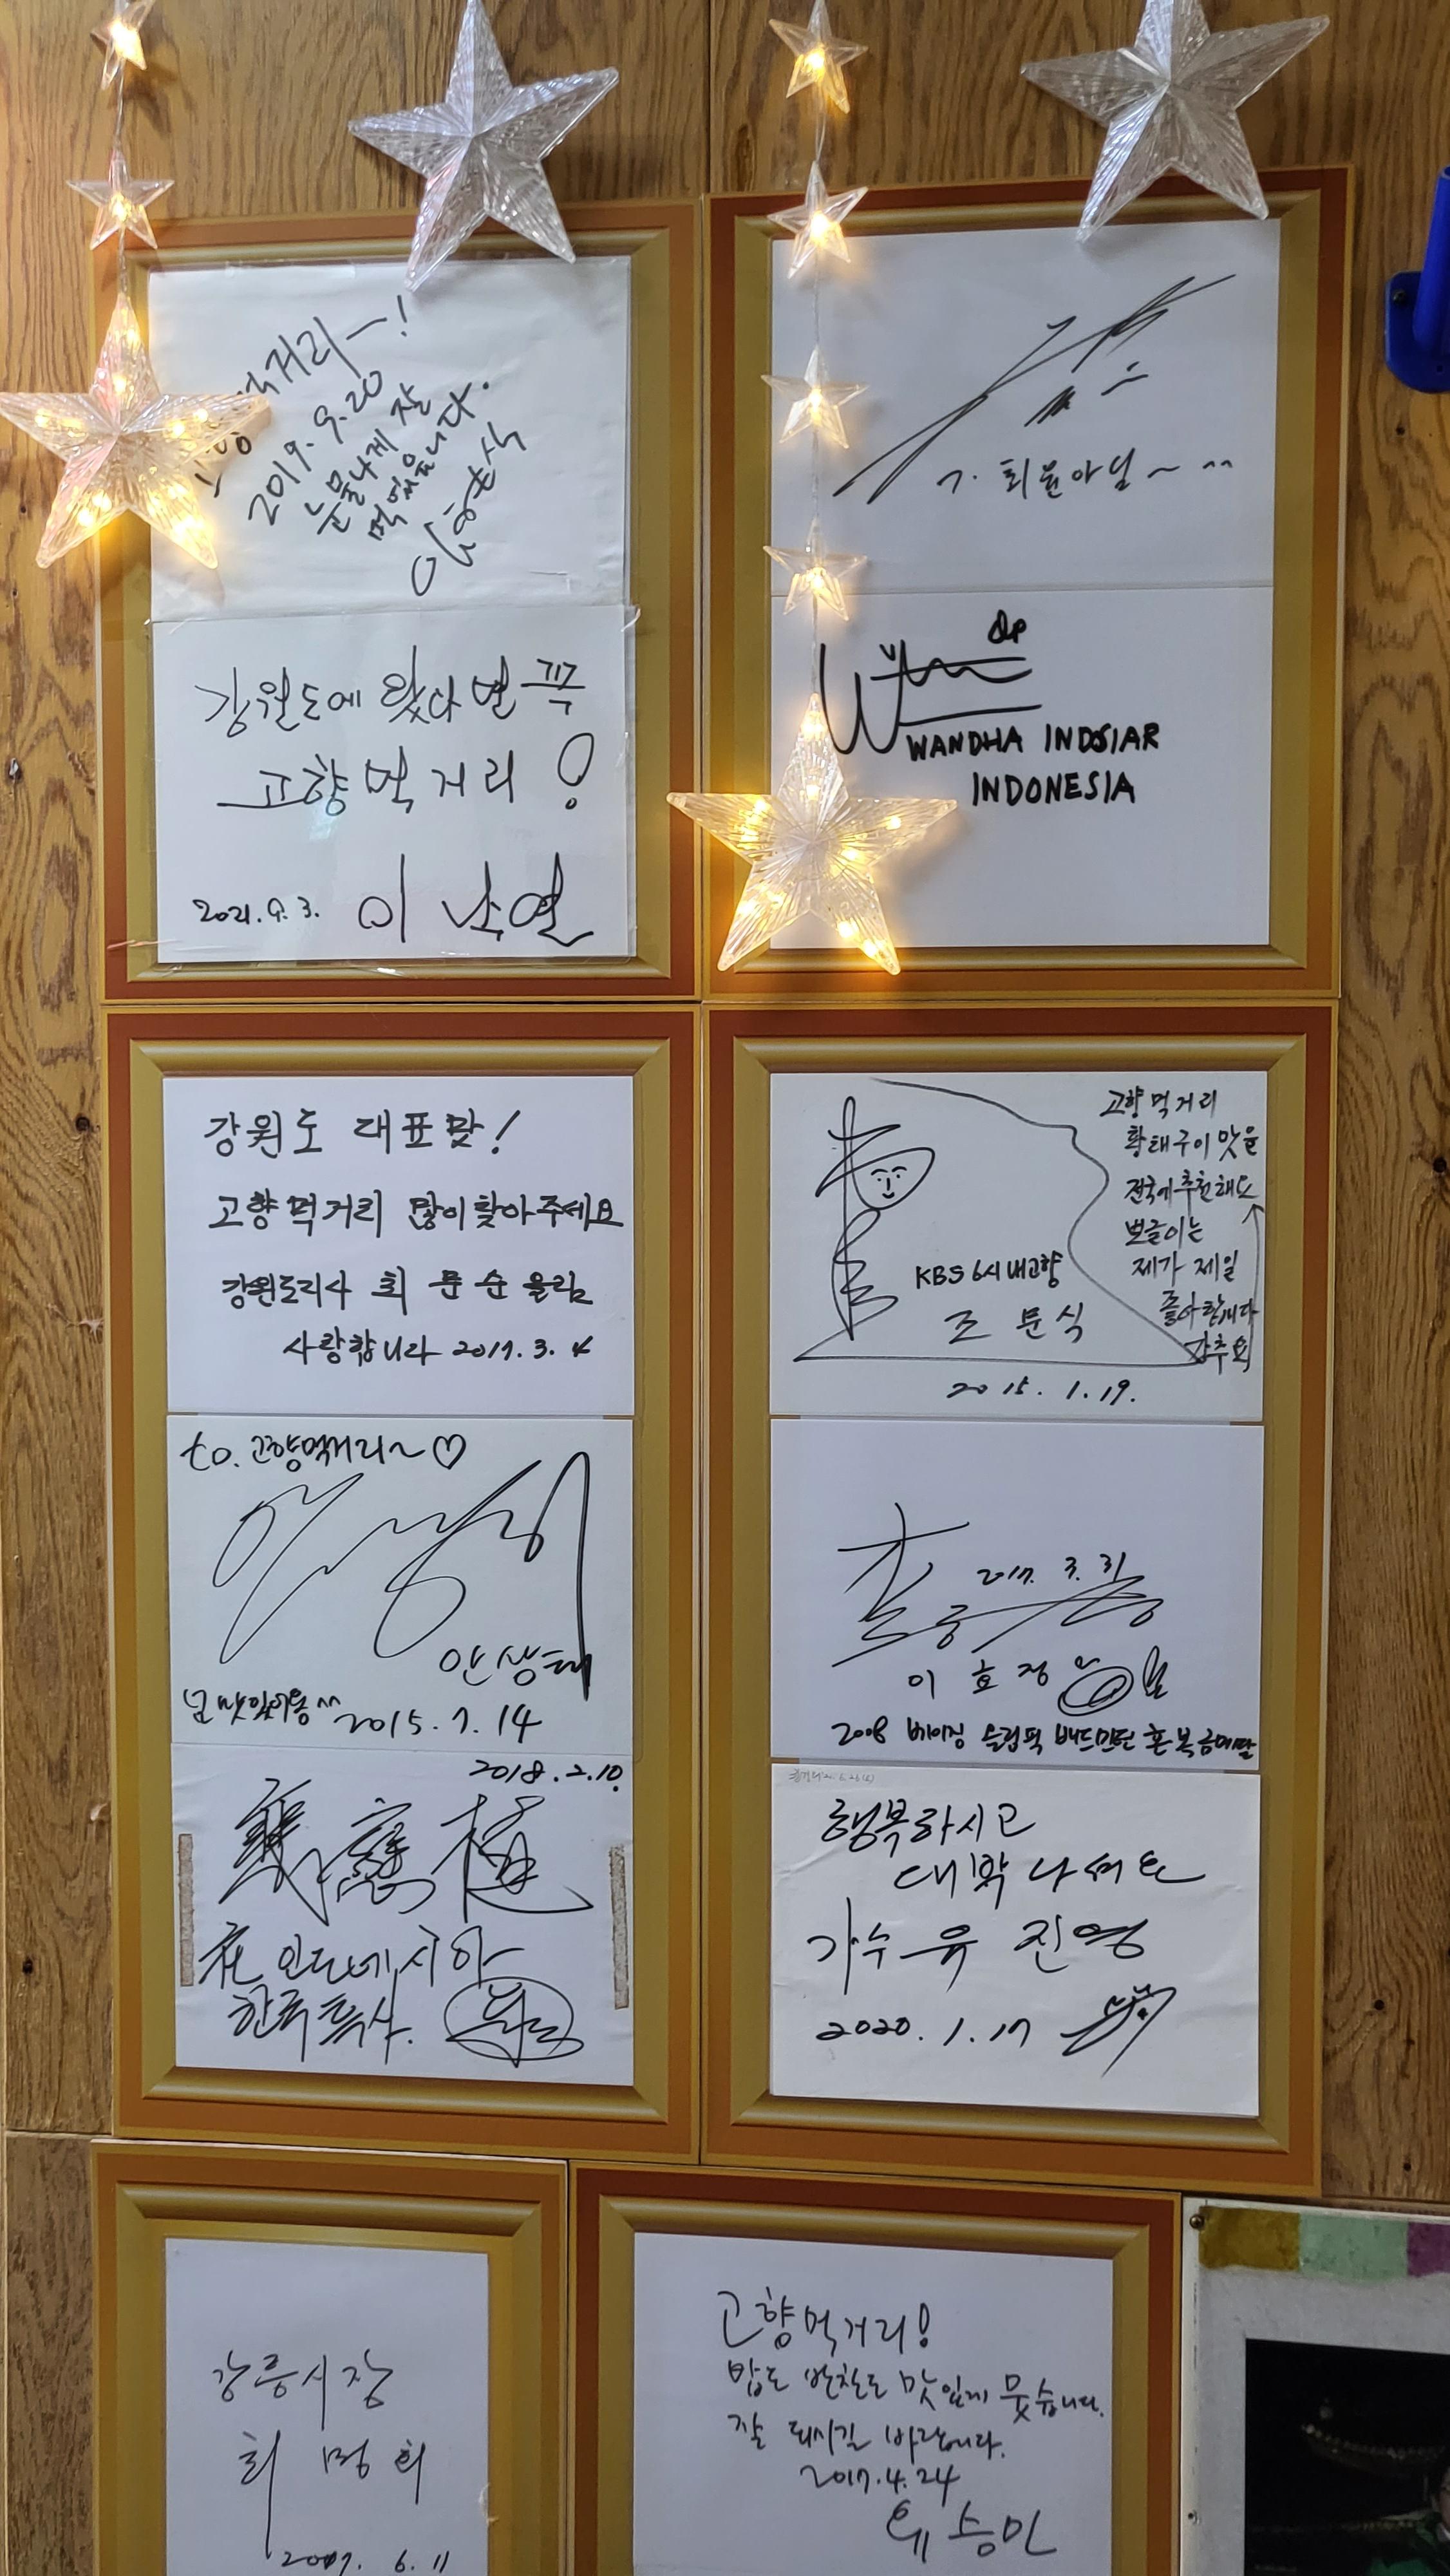 먹거리~!
2019. 9. 20
눈물나게 잘
먹었습니다.
강원도에 왔다면 꼭
고향먹거리!
2021. 9. 3.
T. 최윤아님~ ^^
WANDHA INDSIAR
INDONESIA
강원도 대표맛!
고향먹거리 많이 찾아주세요
강원도지사 최문순 올림
사랑합니다 2017. 3. 4
to. 고향먹거리~♡
안상태
넘 맛있어용^^ 2015. 7. 14
2018. 2. 10.
在 인도네시아
한류특사.
고향먹거리
황태구이 맛을
전국에 추천해요
뽀글이는
제가 제일
좋아합니다
강추요
KBS 6시 내고향
조문식
2015. 1. 19.
2017. 3. 31
이효정
2008 베이징 올림픽 배드민턴 혼복 금메달
행복하시고
대박나세요
가수 유진영
2020. 1. 17
강릉시장
최명희
2007. 6. 11
고향먹거리!
밥도 반찬도 맛있게 묵었습니다.
잘 되시길 바랍니다.
2017. 4. 24
유승민